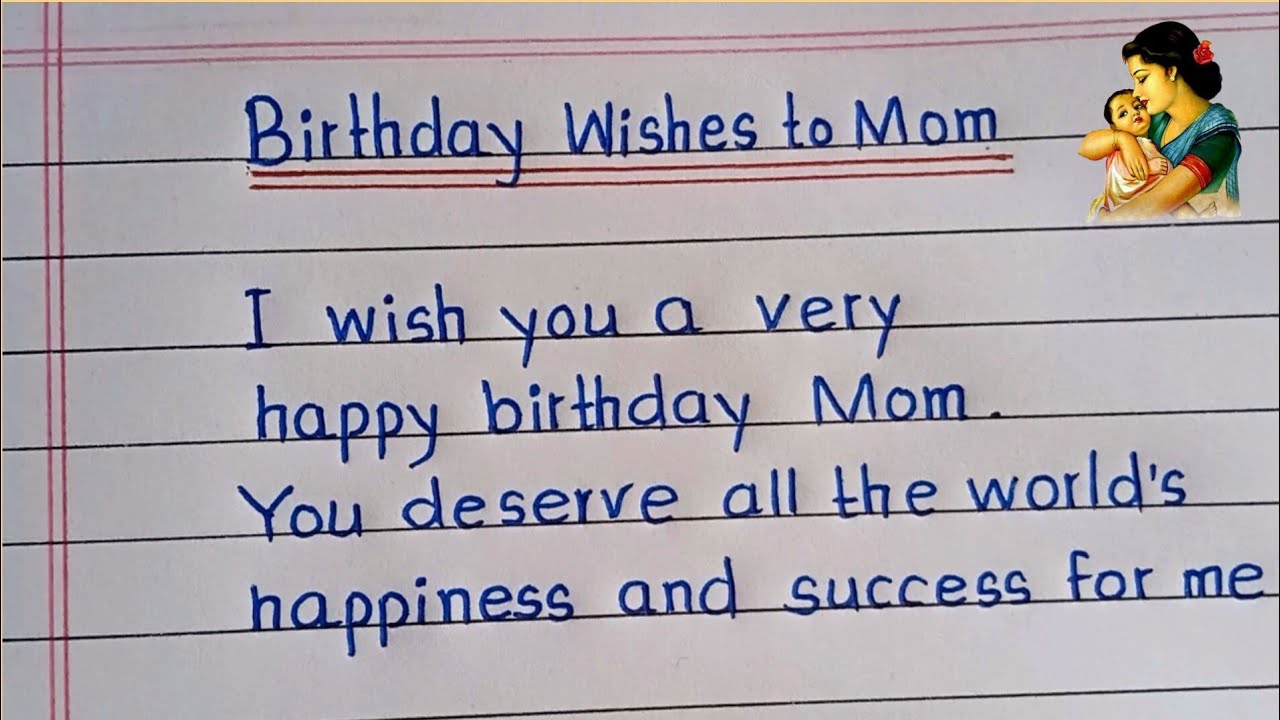 Birthday Wishes to Mom
I wish you a very
happy birthday Mom.
You deserve all the world's
happiness and success for me